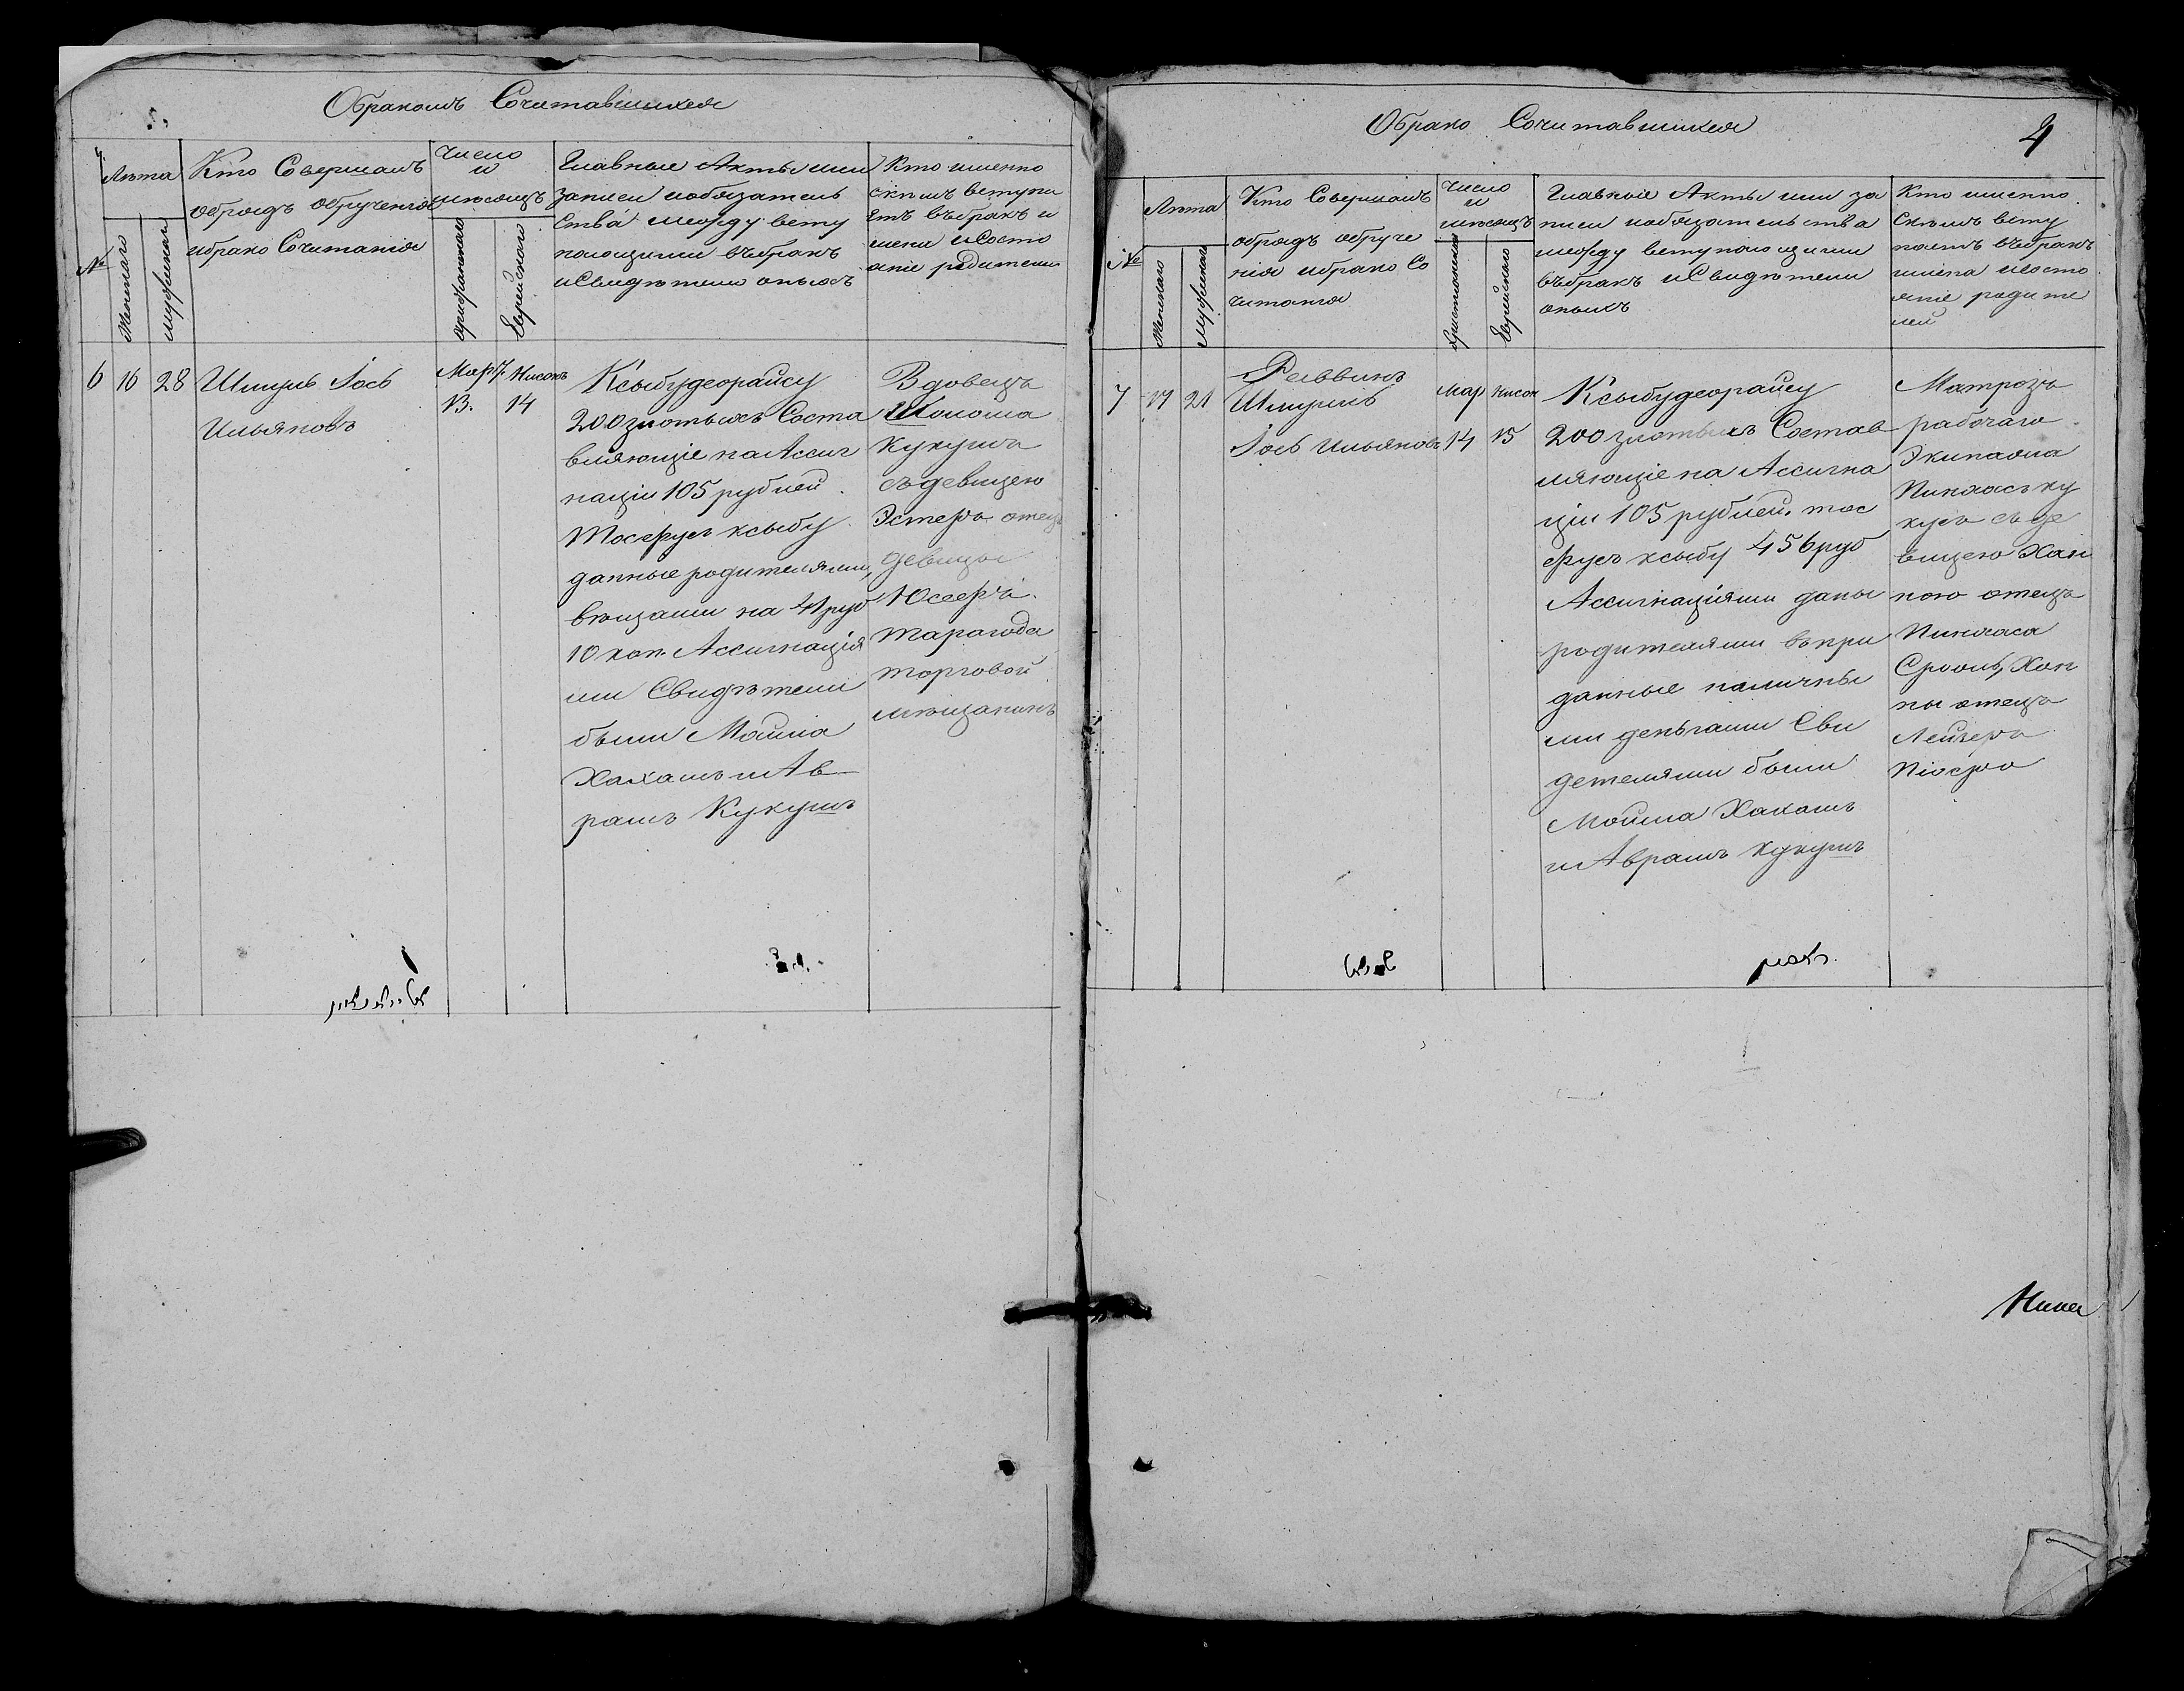 Обракомъ Сочитавшихся
№
Лѣта
Женскаго
Мужескаго
Кто Совершалъ
обрядъ обрученія
ибрако Сочитанія
Число
и
мѣсяцъ
Христіанскаго
Еврейскаго
Главные Акты или
записи иобязатель
Ства между всту
пающими въбракъ
иСвидѣтели оныхъ
Кто именно
скѣмъ вступа
етъ въбракъ и
мена иСосто
яніе родителей
6
16
28
Шмуль Іось
Ильяновъ
Мар
13.
Нисонъ
14
Ксыбудеорайсу
200 злотыхъ Соста
вляющіе наАссиг
націи 105 рублей
Тосефусъ ксыбу
данные родителями,
вещами на 41 руб
10 коп. Ассигнація
ми Свидѣтели
были Мошка
Хахамъ иАв
рамъ Кукушъ
Вдовецъ
Шолома
Кукушъ
съдевицею
Эстеръ отецъ
девицы
Юсефъ
Тарагода
торговой
мѣщанинъ
Обрако Сочитавшихся
4
№
Лѣта
Женскаго
Мужескаго
Кто Совершалъ
обрядъ обруче
нія ибрако Со
читанія
Число
и
мѣсяцъ
Христіанскаго
Еврейскаго
Главные Акты или за
писи иобязательства
между вступающими
въбракъ иСвидѣтели
оныхъ
Кто именно
Скѣмъ всту
паетъ въбракъ
имена исосто
яніе родите
лей
7
19
21
Раввинъ
Шмуиль
Іось Ильяновъ
Мар
14
Нисон
15
Ксыбудеорайсу
200 злотыхъ Состав
ляющіе на Ассигна
ціи 105 рублей. тос
ефусъ ксыбу 456 руб
Ассигнаціями даны
родителями въпри
данные наличны
ми деньгами Сви
детелями были
Мошка Хахамъ
иАврамъ Кукушъ
Матрозъ
рабочаго
Экипажа
Пинхасъ Ку
кусъ съде
вицею Хан
ною отецъ
Пинхаса
Сроуль, Хан
ны отецъ
Лейзеръ